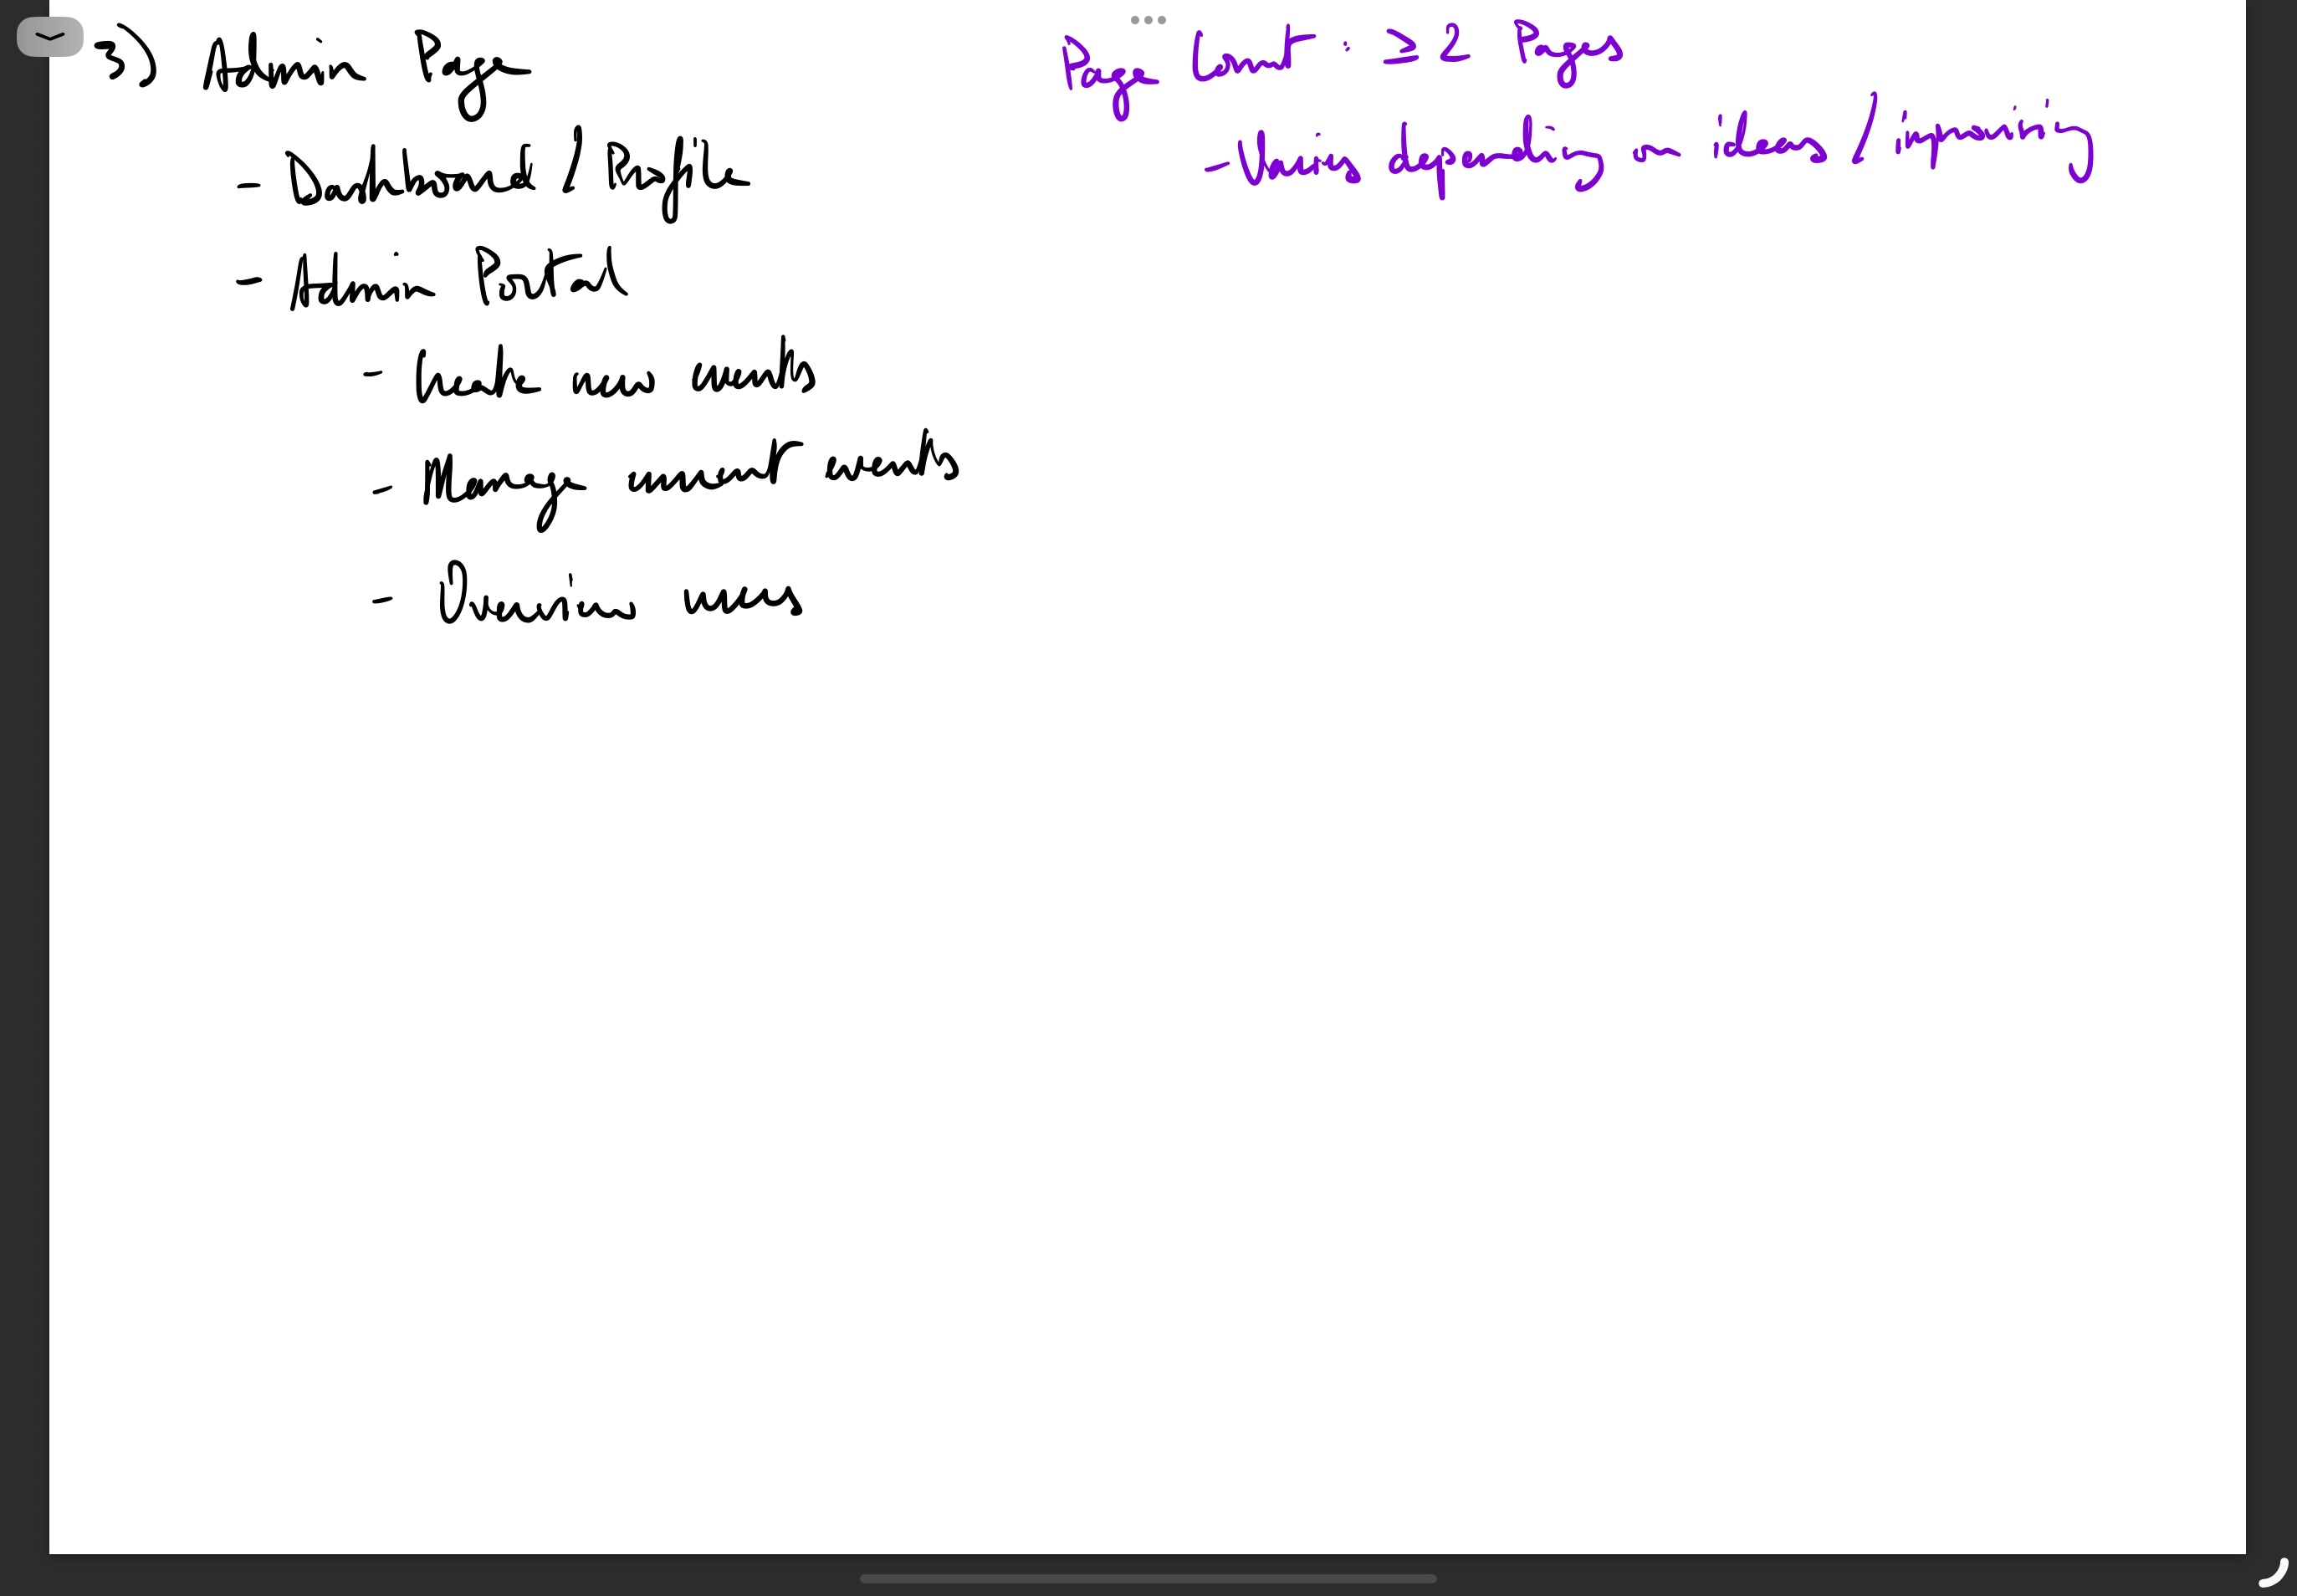 3) Admin Page
- Dashboard / Profile
- Admin Portal
- Create new events
- Manage current events
- Overview users
Page Count : ≥ 2 Pages
- Varies depending on ideas / immersivity